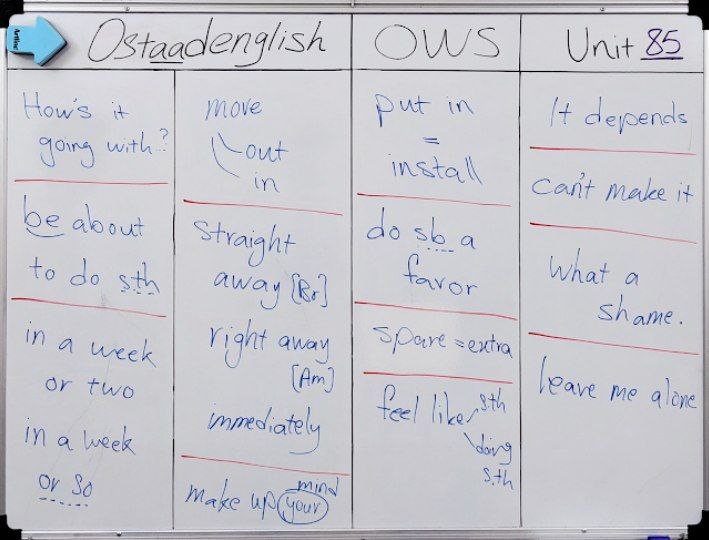 Ostaadenglish
OWS
Unit 85
How's it
going with..?
be about
to do s.th
in a week
or two
in a week
or so
move
out
in
straight
away [Br]
right away
[Am]
immediately
make up your mind
put in
=
install
do sb a
favor
spare = extra
feel like s.th
doing
s.th
It depends
can't make it
What a
shame.
leave me alone